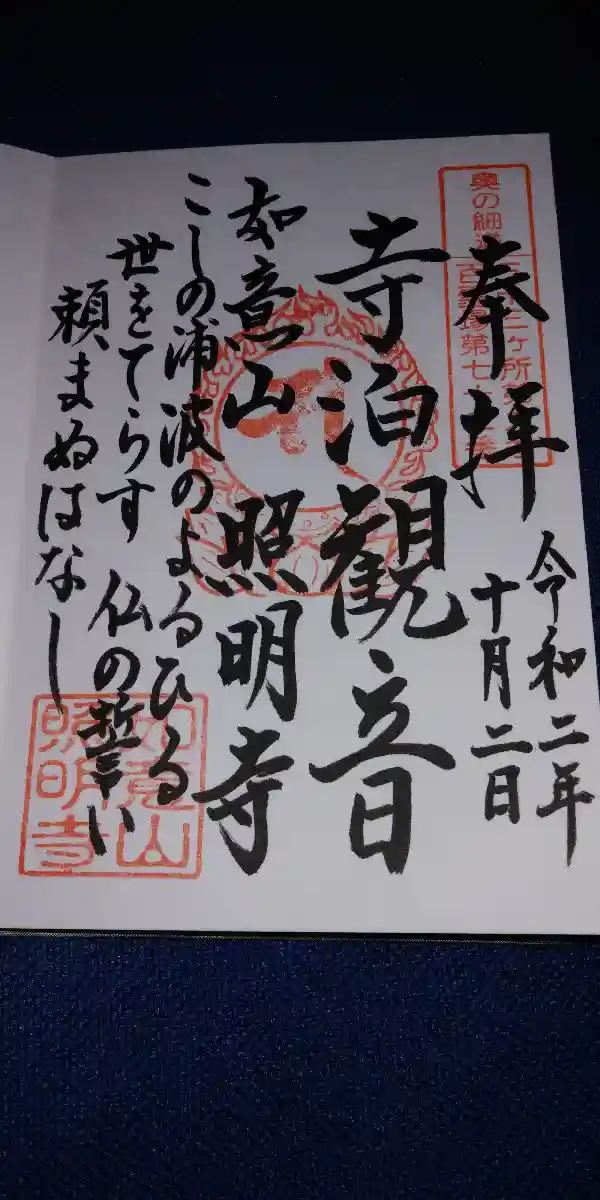 奉拝
令和二年
十月二日
寺泊観音
如意山 照明寺
こしの浦波のよるひる
世をてらす 仏の誓い
頼まぬはなし
奥の細道
ヶ所
第七
如意山
照明寺